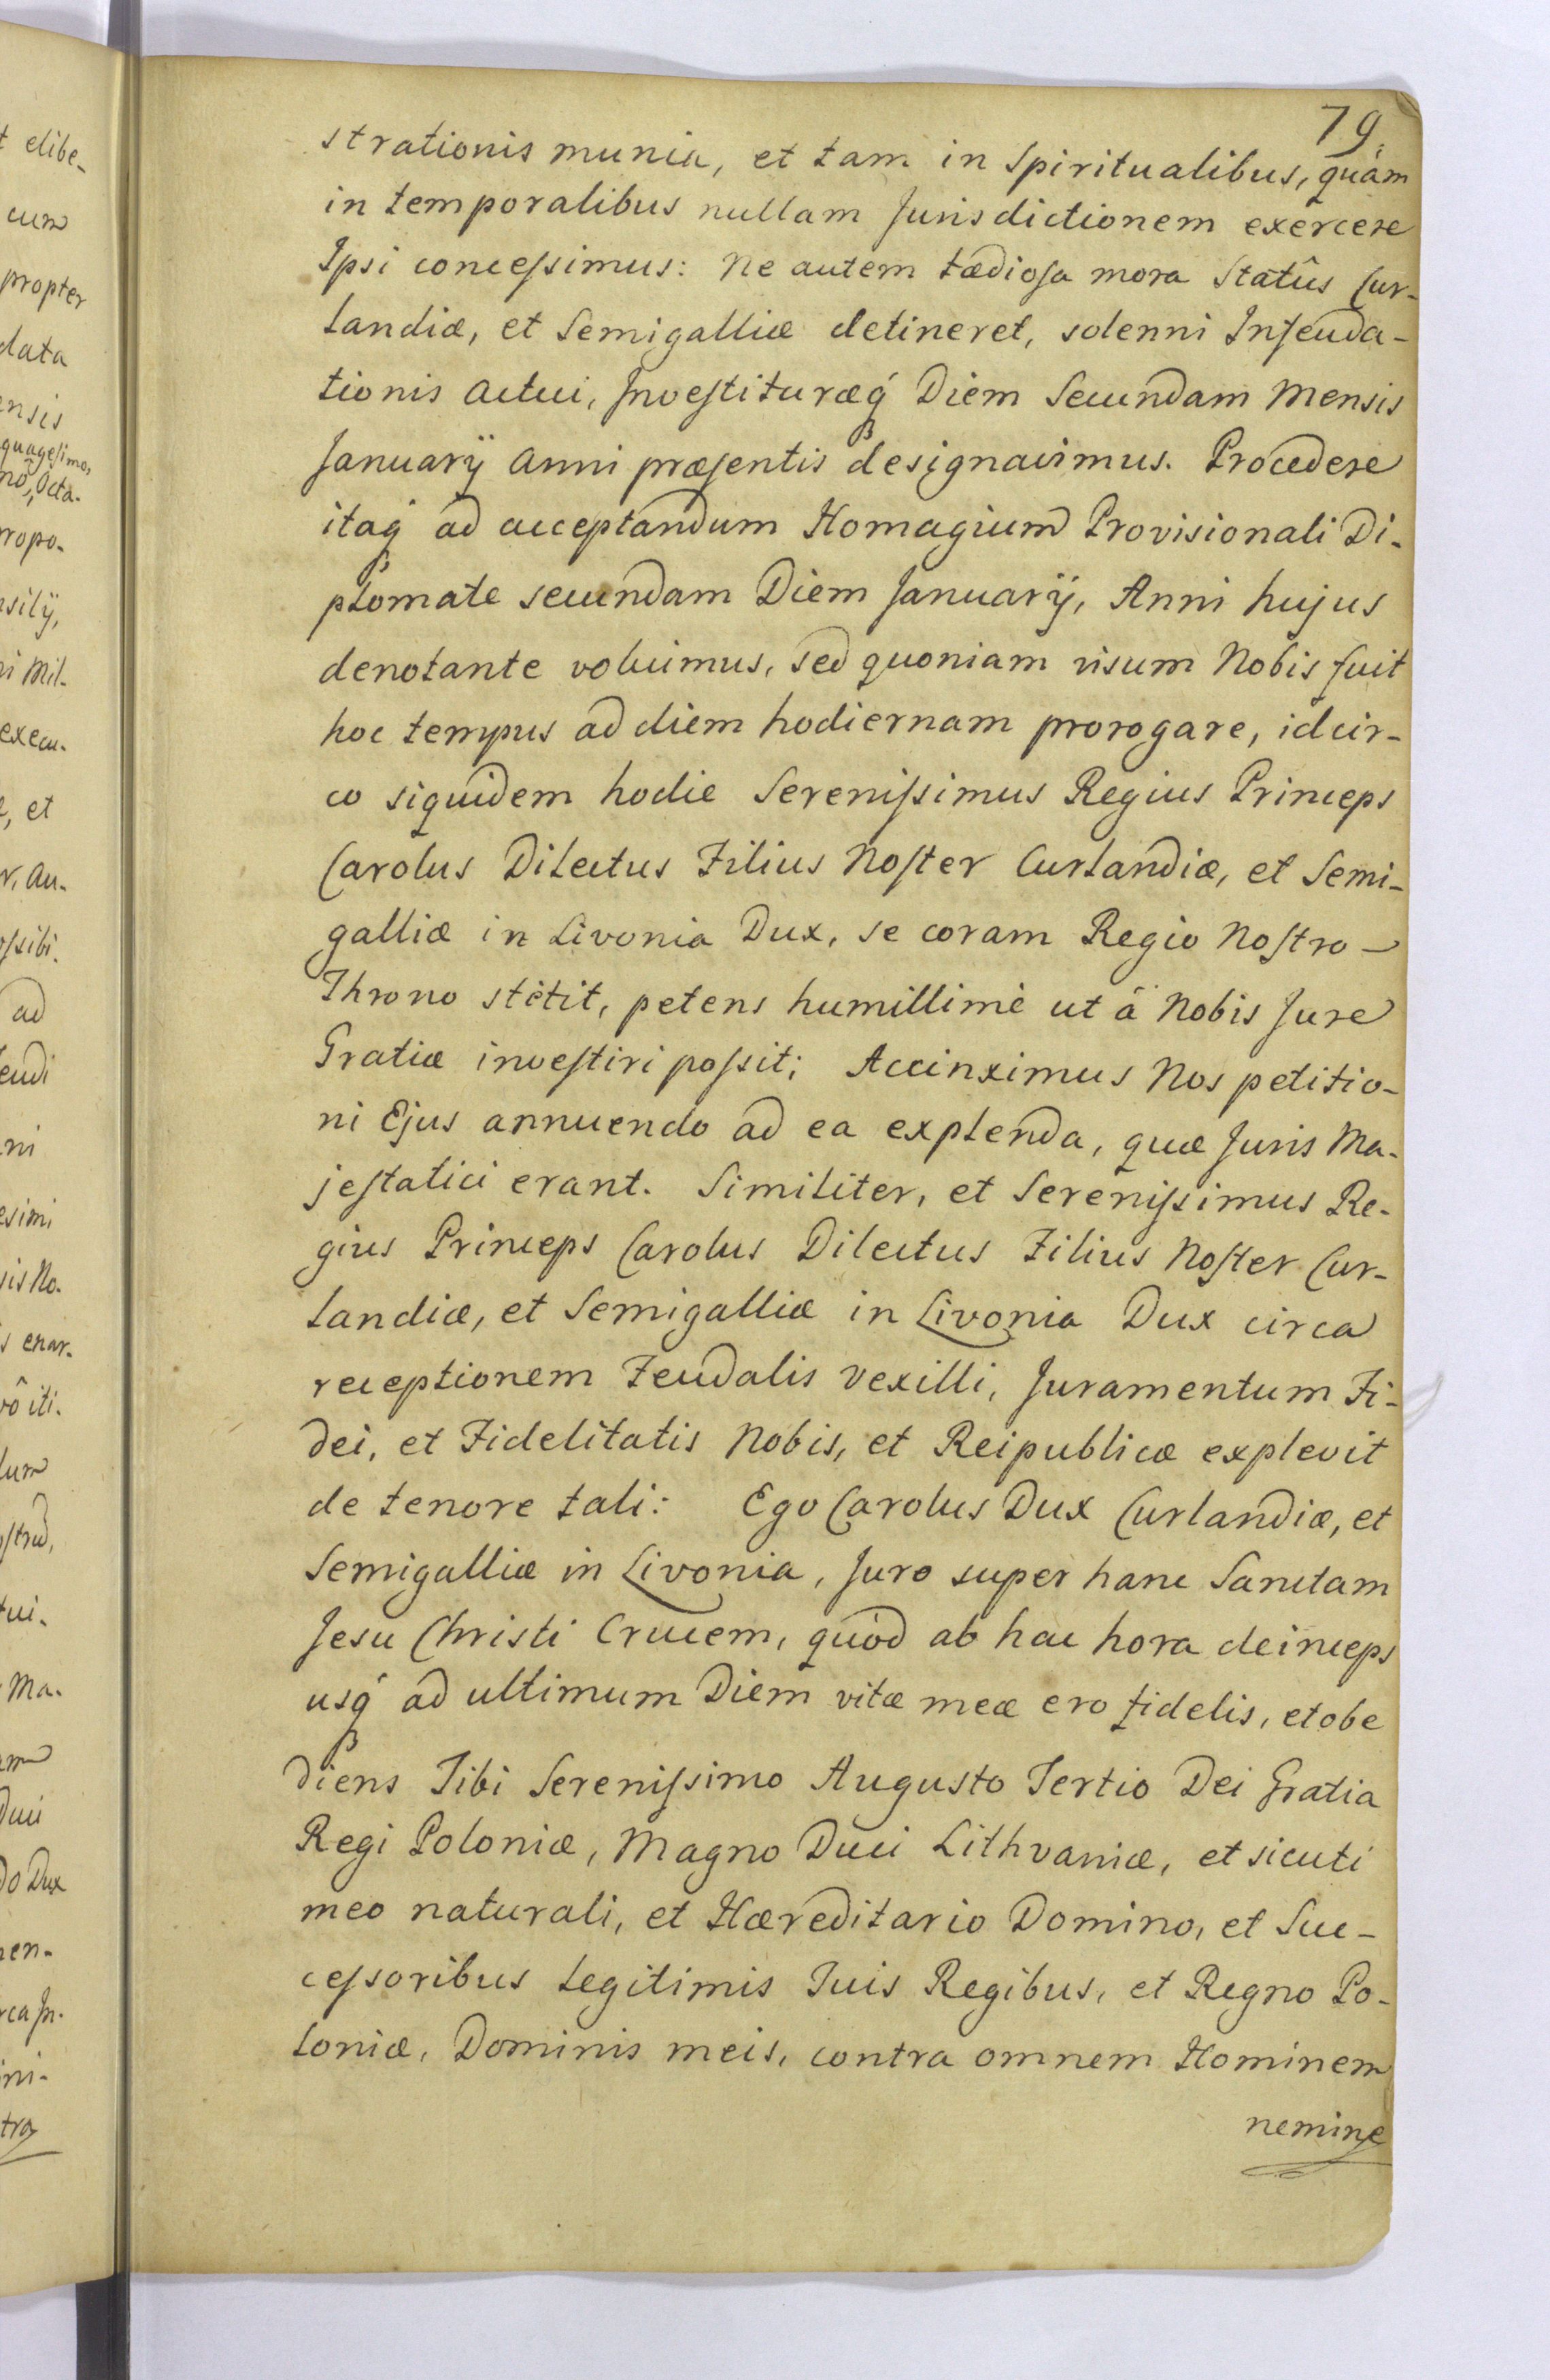 79.
strationis munia, et tam in Spiritualibus, quàm
in temporalibus nullam Jurisdictionem exercere
Ipsi concessimus: Ne autem tædiosa mora Statûs Cur-
landiæ, et Semigalliæ detineret, solenni Infeuda-
tionis Actui, Investituræq́ꝫ Diem Secundam Mensis
Januarij Anni præsentis designavimus. Procedere
itaq́ꝫ ad acceptandum Homagium Provisionali Di-
plomate secundam Diem Januarij, Anni hujus
denotante voluimus, sed quoniam visum Nobis fuit
hoc tempus ad diem hodiernam prorogare, idcir-
co siquidem hodie Serenissimus Regius Princeps
Carolus Dilectus Filius Noster Curlandiæ, et Semi-
galliæ in Livonia Dux, se coram Regio Nostro
Throno stètit, petens humillimè ut à Nobis Jure
Gratiæ investiri possit; Accinximus Nos petitio-
ni Ejus annuendo ad ea explenda, quæ Juris Ma-
jestatici erant. Similiter, et Serenissimus Re-
gius Princeps Carolus Dilectus Filius Noster Cur-
landiæ, et Semigalliæ in Livonia Dux circa
receptionem Feudalis Vexilli, Juramentum Fi-
dei, et Fidelitatis Nobis, et Reipublicæ explevit
de tenore tali: Ego Carolus Dux Curlandiæ, et
Semigalliæ in Livonia, Juro super hanc Sanctam
Jesu Christi Crucem, quòd ab hac hora deinceps
usq́ꝫ ad ultimum Diem vitæ meæ ero fidelis, et obe
diens Tibi Serenissimo Augusto Tertio Dei Gratia
Regi Poloniæ, Magno Duci Lithvaniæ, et sicuti
meo naturali, et Hæreditario Domino, et Suc-
cessoribus Legitimis Tuis Regibus, et Regno Po-
loniæ, Dominis meis, contra omnem Hominem
nemine